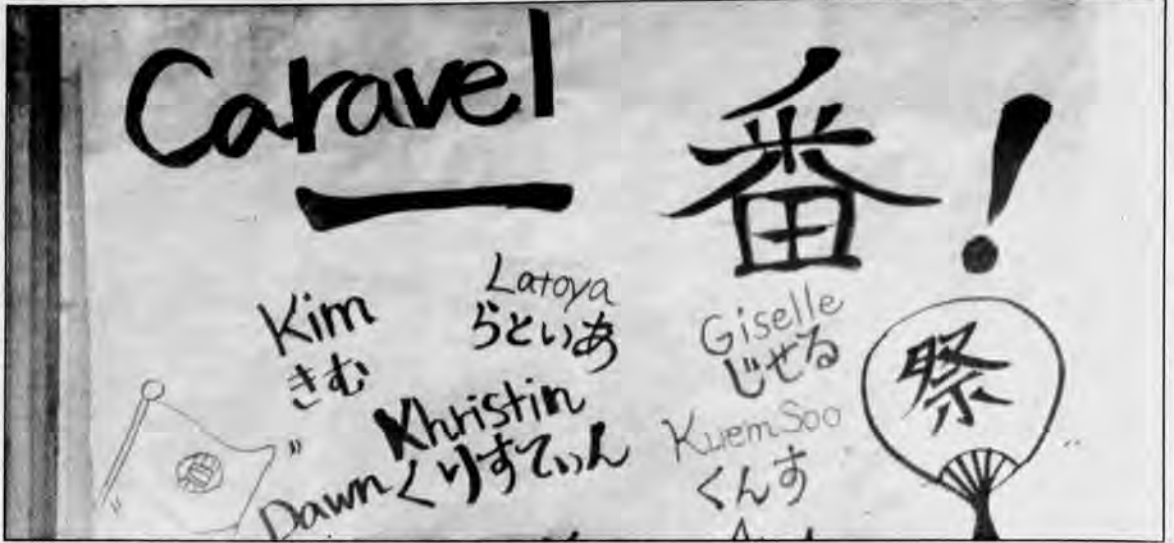 Caravel
一番!
Kim
きむ
Latoya
らといあ
Giselle
じせる
祭
Khristin
くりすてぃん
KuemSoo
くんす
Dawn